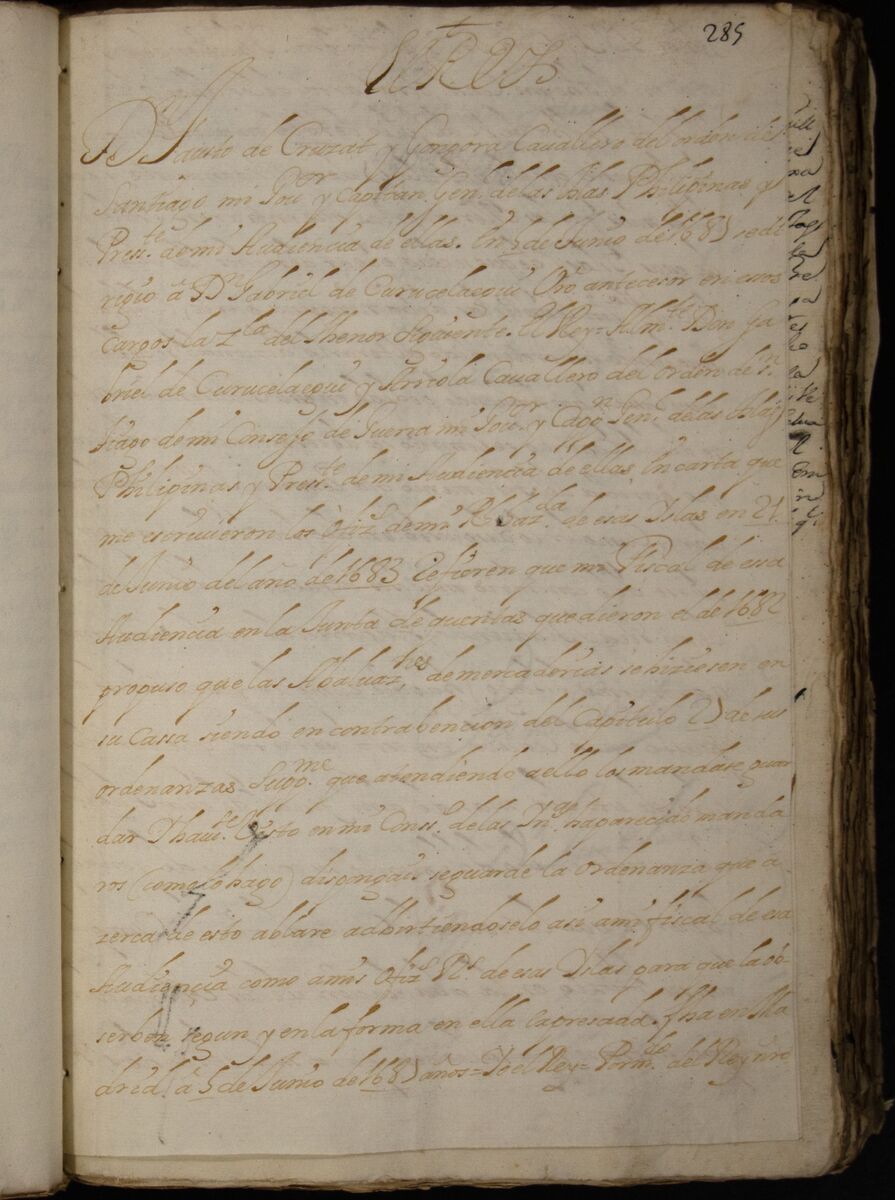 289
El Rey
Dn Fausto de Cruzat y Gongora Cavallero del orden de
Santiago mi Gouor y Capitan Genl de las Yslas Philipinas y
Presste de mi Audiencia de ellas. En 5 de Junio de 1685 se di
rigio á Dn Gabriel de Curucelaegui Vro antecesor en esos
cargos la Zla del thenor siguiente. El Rey = Almte Don Ga
briel de Curucelaegui y Arriola Cavallero del orden de Sn
tiago de mi Consejo de Guerra mi Gouor y Capn Genl de las Yslas
Philipinas y Presste de mi Audiencia de ellas En carta que
me escriuieron los ofizs de mi Rl hazda de esas Yslas en 21
de Junio del año de 1683 Refieren que mi Fiscal de essa
Audiencia en la Junta de quentas que dieron el de 1682
propuso que las Abaluaznes de mercaderias se hiziesen en
su Cassa siendo en contrabencion del Capitulo 25 de sus
ordenanzas Suppme que atendiendo a ello los mandase guar
dar Y hause Visto en mi Consso de las Yns ha parecido manda
ros (como lo hago) dispongais seguarde la ordenanza que a
zerca de esto ablare adbirtiendoselo asi a mi fiscal de esa
Audiencia como a mis ofizs Rs de esas Yslas para que la ob-
serben segun y en la forma en ella expresada. fha en Ma
drid á 5 de Junio de 1685 años = Yo el Rey = Por mdo del Rey nro